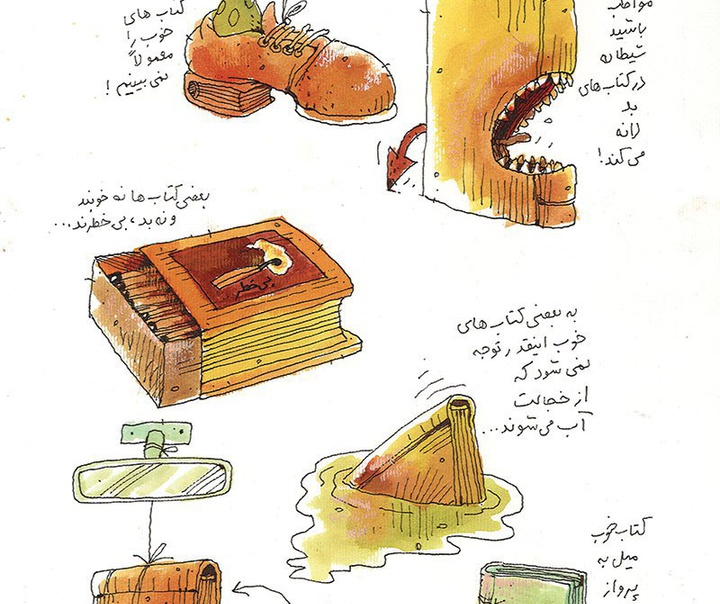 مواظب
باشید
شیطان
در کتاب های
بد
لانه
می کند!
کتاب های
خوب را
معمولاً
نمی بینیم!
بعضی کتاب ها نه خوبند
و نه بد، بی خطرند...
بی خطر
به بعضی کتاب های
خوب اینقدر توجه
نمی شود که
از خجالت
آب می شوند...
کتاب خوب
میل به
پرواز